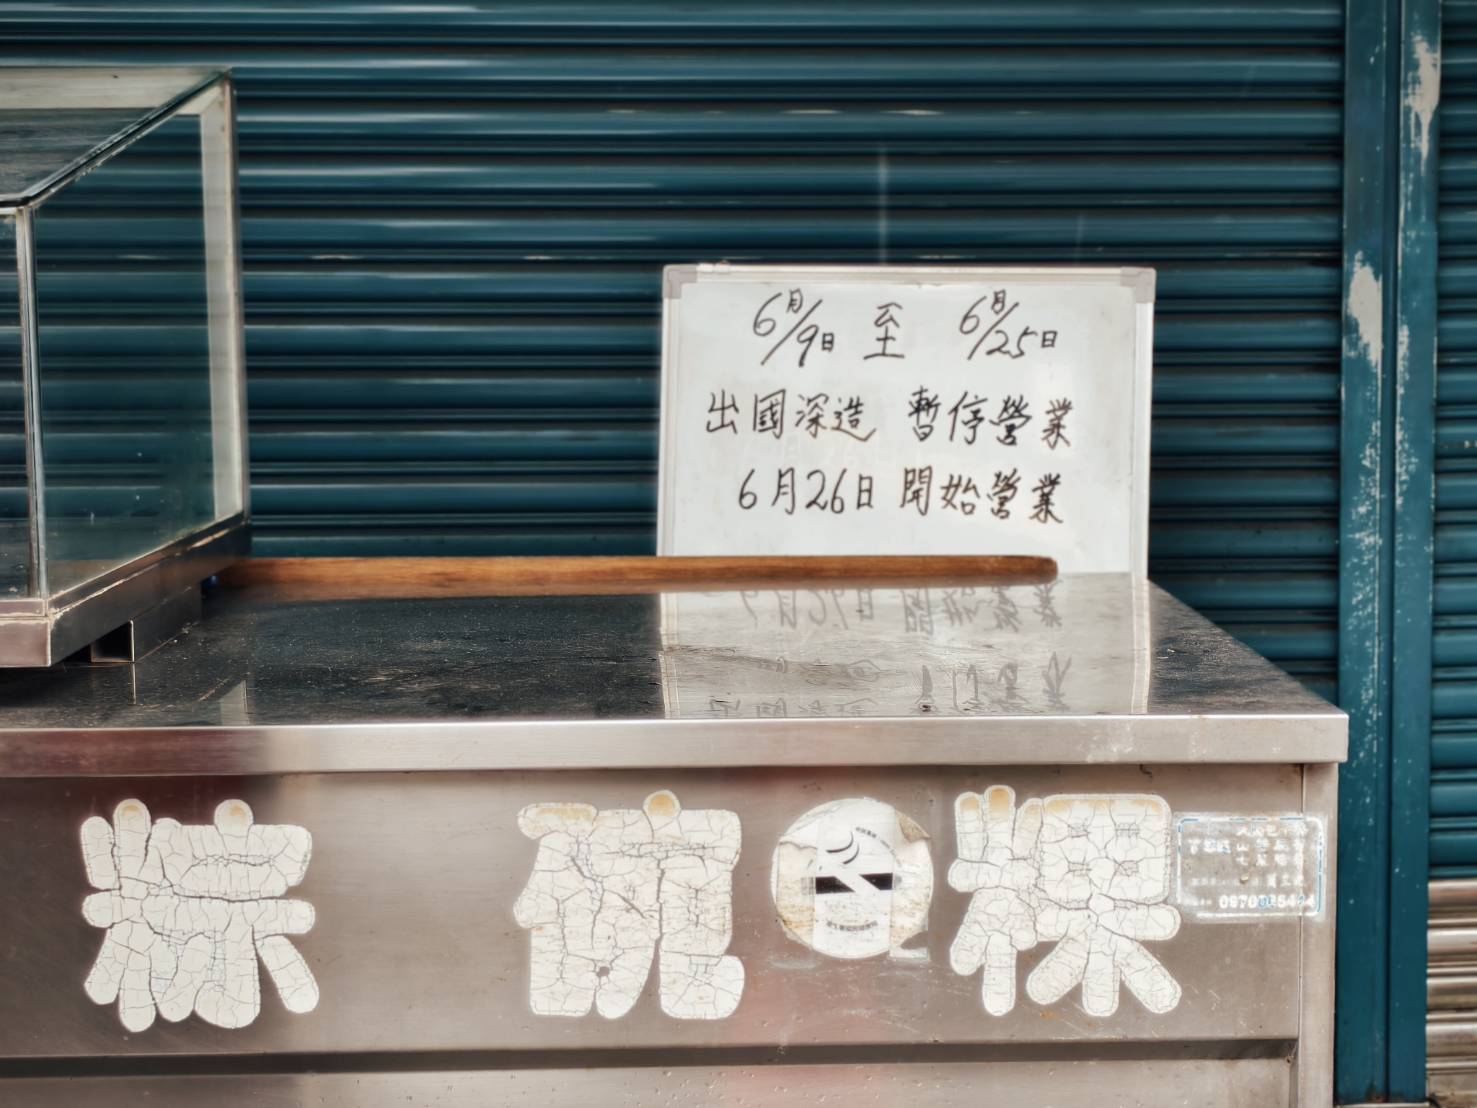 6月/9日 至 6月/25日
出國深造 暫停營業
6月26日 開始營業
粽 碗 粿